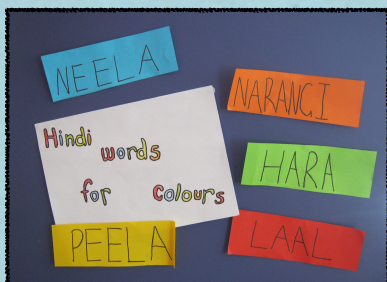 NEELA
NARANGI
Hindi
words
for colours
HARA
PEELA
LAAL